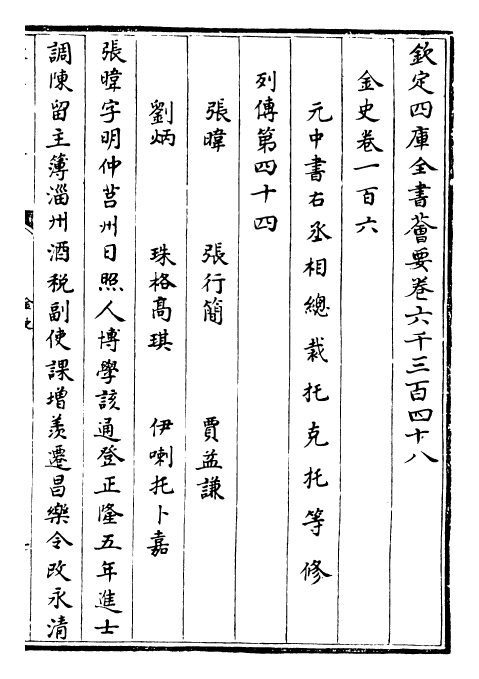 欽定四庫全書薈要卷六千三百四十八
金史卷一百六
元中書右丞相總裁托克托等修
列傳第四十四
張暐 張行簡 賈益謙
劉炳 珠格髙琪 伊喇托卜嘉
張暐字明仲莒州日照人博學該通登正隆五年進士
調陳留主簿淄州酒税副使課增羨遷昌樂令改永清